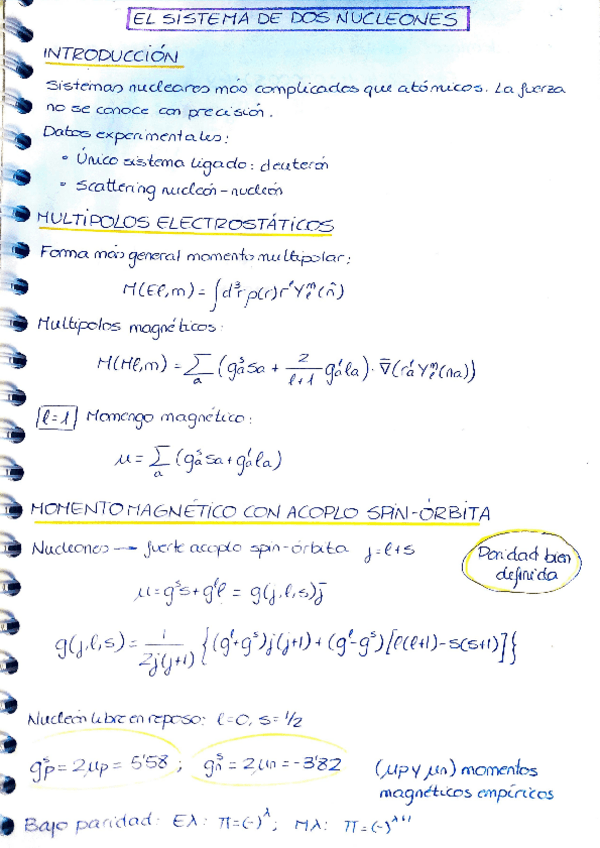 EL SISTEMA DE DOS NUCLEONES
INTRODUCCIÓN
Sistemas nucleares más complicados que atómicos. La fuerza
no se conoce con precisión.
Datos experimentales:
• Único sistema ligado: deuterón
• Scattering nucleón-nucleón
MULTIPOLOS ELECTROSTÁTICOS
Forma más general momento multipolar:
M(Eℓ,m) = ∫d³r ρ(r) r^ℓ Y_ℓ^m(n̂)
Multipolos magnéticos:
M(Mℓ,m) = Σ_a (g_a^s s_a + 2/(ℓ+1) g_a^ℓ ℓ_a)·∇̄(r_a^ℓ Y_ℓ^m(n_a))
ℓ=1 Momengo magnético:
μ = Σ_a (g_a^s s_a + g_a^ℓ ℓ_a)
MOMENTO MAGNÉTICO CON ACOPLO SPIN-ÓRBITA
Nucleones → fuerte acoplo spin-órbita j=ℓ+s
Paridad bien
definida
μ = g^s s + g^ℓ ℓ = g(j,ℓ,s) j̄
g(j,ℓ,s) = 1/(2j(j+1)) {(g^ℓ+g^s)j(j+1) + (g^ℓ-g^s)[ℓ(ℓ+1)-s(s+1)]}
Nucleón libre en reposo: ℓ=0, s=1/2
g_p^s = 2μp = 5'58 ; g_n^s = 2μn = -3'82 (μp y μn) momentos
magnéticos empíricos
Bajo paridad: Eλ: π=(-)^λ ; Mλ: π=(-)^λ+1